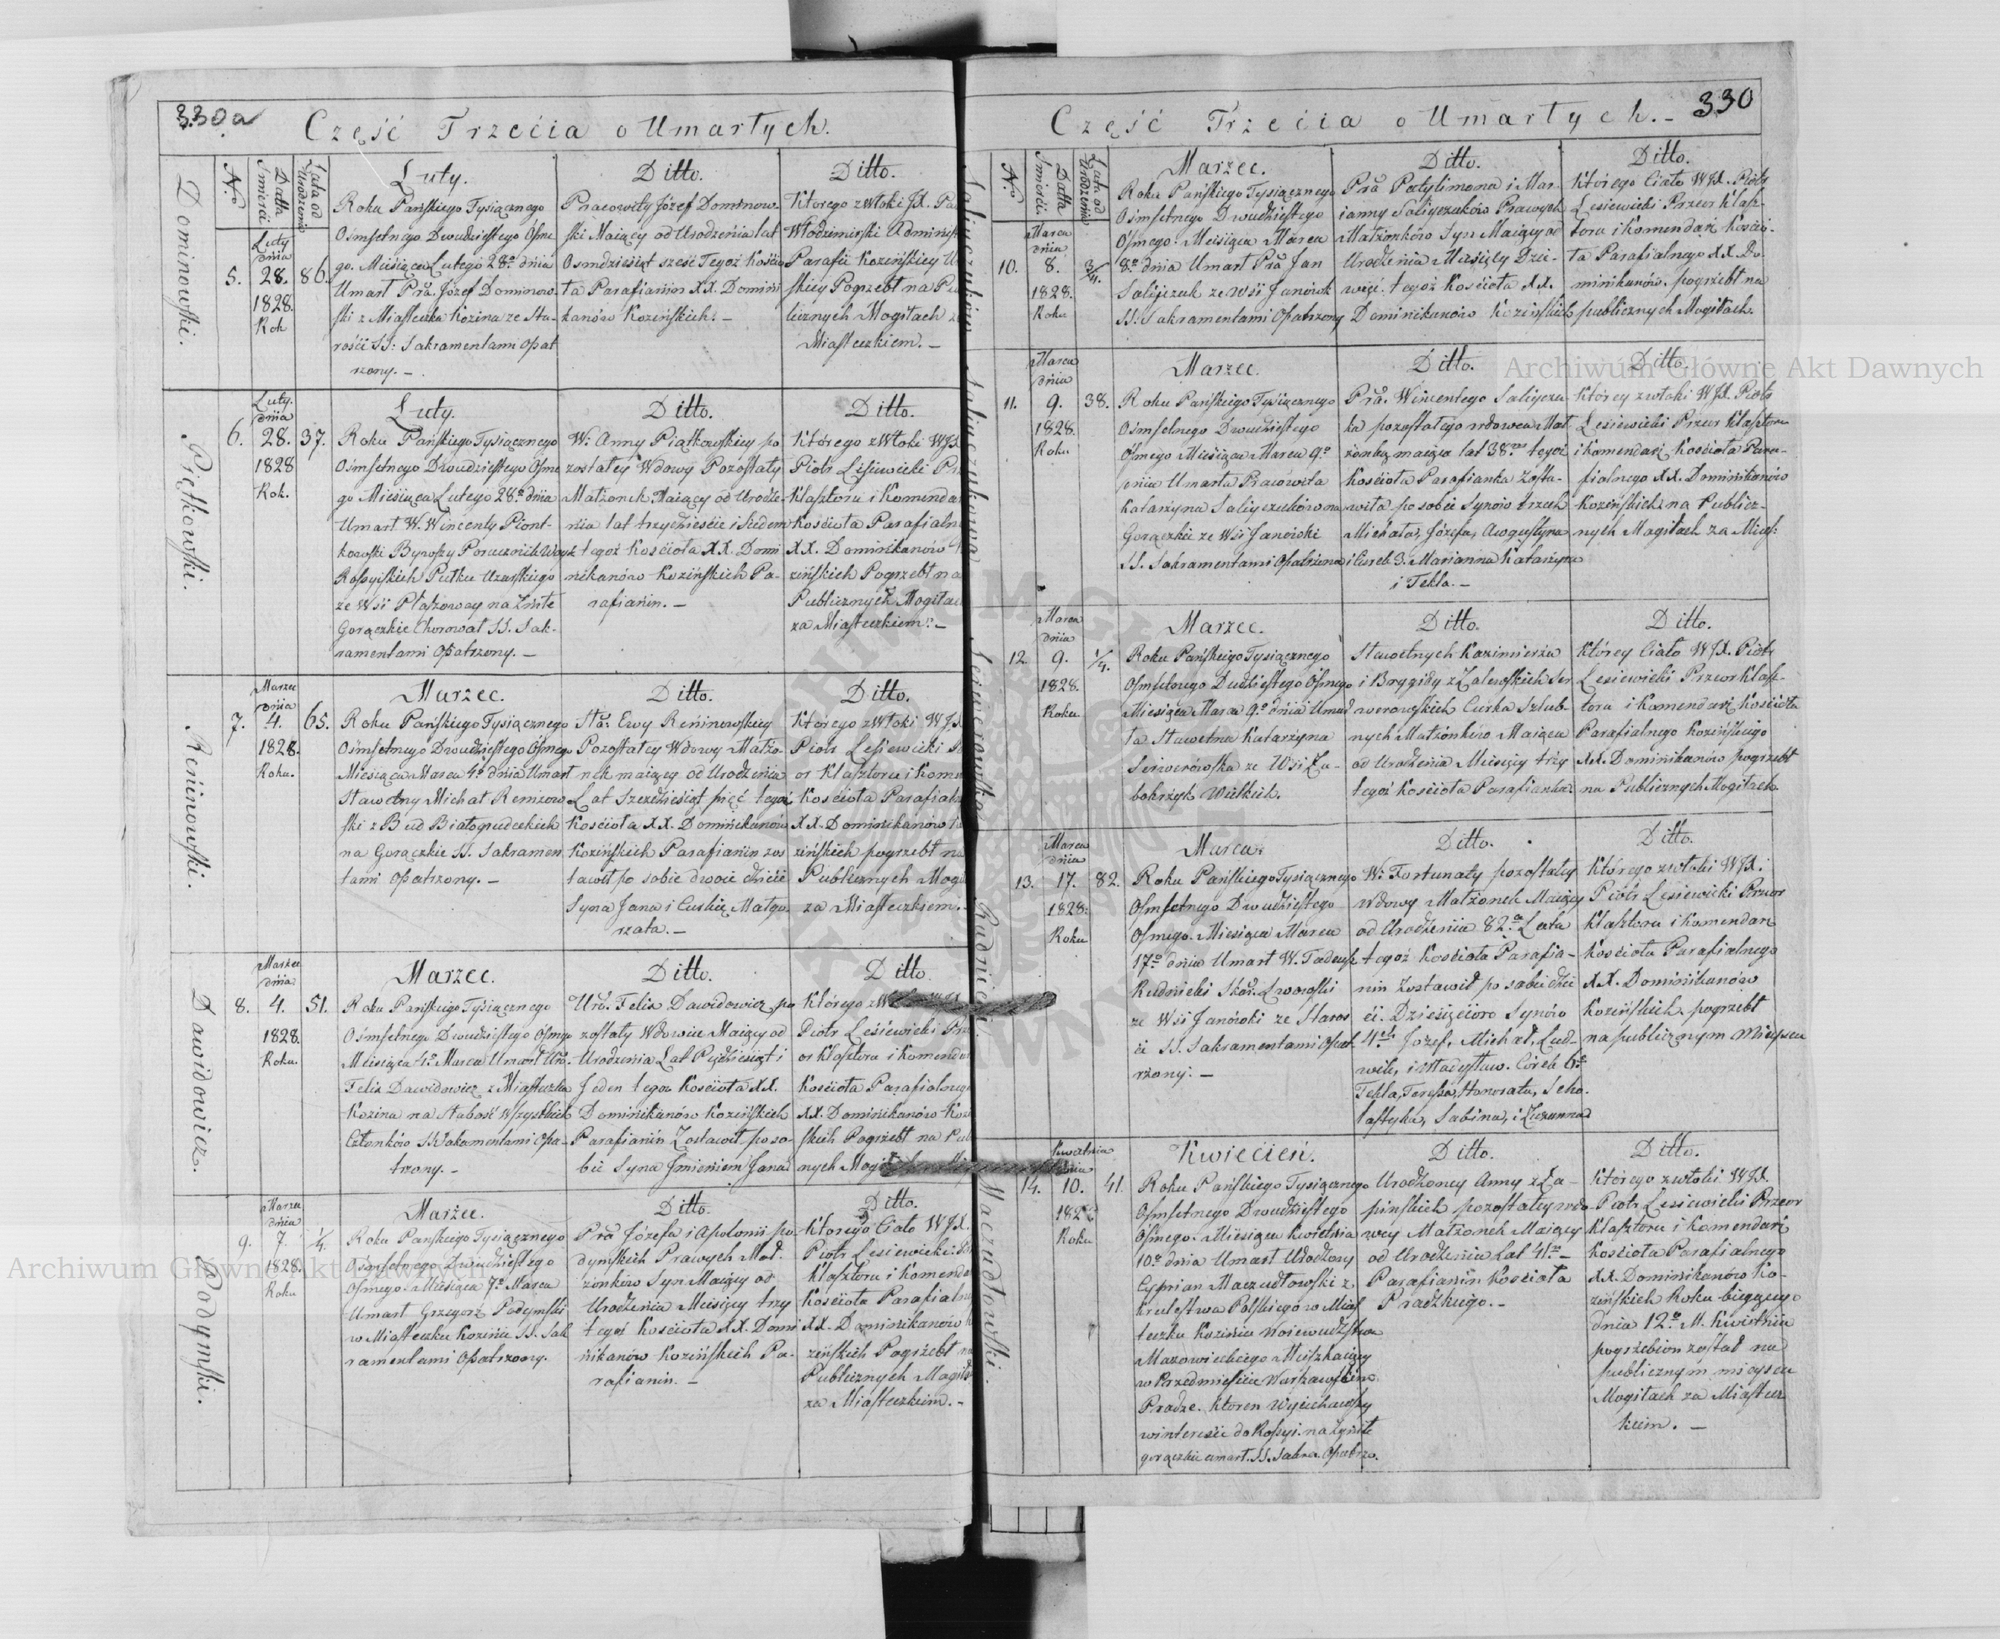 330a
Część Trzećia o Umarłych.
Dominowski.
N.ro
Datta Śmierći.
Lata od Urodzenia
Luty dńia
5. 28. 86.
1828.
Rok
Luty.
Roku Pańskiego Tysiącznego
Ośmsetnego Dwudziestego Ósme-
go. Mieśiąca Lutego 28.o dńia
Umarł Pra. Jozef Dominow-
ski z Miasteczka Kozina ze Sta-
rośći SS: Sakramentami Opat
rzony. —
Ditto.
Pracowity Józef Dominow-
ski Maiący od Urodzenia lat
Osmdziesiąt sześć Tegoż Kośćio
ła Parafianin XX. Domini
kanów Kozińskich. —
Ditto.
Ktorego zwłoki JX.
Włodzimirski Adminis
Parafii Kozińskiey
skiey Pogrzebł na
licznych Mogiłach
Miasteczkiem. —
Piętkowski.
Luty.
dńia
6. 28. 37.
1828
Rok.
Luty.
Roku Pańskiego Tysiącznego
Ośmsetnego Dwudziestego Ósme
go Mieśiąca Lutego 28.o dńia
Umarł W. Wincenty Piont-
kowski Bywszy Porucznik Woysk
Rossyiskich Pułku Uzarskiego
ze Wsi Płaszoway na Zimte
Gorączkie Chorował SS. Sak-
ramentami Opatrzony. —
Ditto.
W: Anny Piątkowskiey po
zostałey Wdowy Pozostały
Małżonek Maiący od Urodze
nia lat trzydzieście i siedem
tegoż Kośćioła XX. Domi
nikanów Kozińskich Pa-
rafianin. —
Ditto.
Którego zwłoki WJX.
Piotr Lisiewicki
Klasztoru i Komenda
Kościoła Parafialn
XX. Dominikanów
zińskich Pogrzebł na
Publicznych Mogiłac
za Miasteczkiem: —
Reńinowski.
Marzec
dńia
7. 4. 65.
1828.
Roku.
Marzec.
Roku Pańskiego Tysiącznego
Ośmsetnego Dwudziestego Ósmego
Mieśiąca Marca 4.o dńia Umarł
Sławetny Michał Reninow
ski z Bud Białogrudeckich
na Gorączkie SS. Sakramen
tami Opatrzony. —
Ditto.
Sła: Ewy Reninowskiey
Pozostałey Wdowy Małżo-
nek maiący od Urodzenia
Lat Szesdziesiąt pięć tegoż
Kościoła XX. Dominikanów
Kozińskich Parafianin zos
tawił po sobie dwoie dzieći
Syna Jana i Curkie Małgo-
rzata. —
Ditto.
Ktorego zwłoki WJX
Piotr Lesiewicki
or Klasztoru i Kom
Kościoła Parafial
XX. Dominikanów
zińskich pogrzebł na
Publicznych Mogił
za Miasteczkiem. —
Dawidowicz.
Marzec
dńia
8. 4. 51.
1828.
Roku.
Marzec.
Roku Pańskiego Tysiącznego
Ośmsetnego Dwudziestego Ósmego
Mieśiąca 4.o Marca Umarł Uro.
Felix Dawidowicz z Miasteczka
Kozina na słabość Wszystkich
Członków SS. Sakramentami Opa-
trzony. —
Ditto.
Uro. Felix Dawidowicz po
zostały Wdowiec Maiący od
Urodzenia Lat Pędzieśiąt i
Jeden tegoż Kościoła XX.
Dominikanów Kozińskich
Parafianin Zostawił po so-
bie Syna Imieniem Jana
Ditto
Którego
Piotr Lesiewicki
or Klasztoru i Komenda
Kościoła Parafialnego
XX. Dominikanów Kozi
skich Pogrzebł na Pub
nych
Podymski.
Marca
dńia
9. 7. 1/4.
1828.
Roku
Marzec.
Roku Pańskiego Tysiącznego
Ósmsetnego Dwudziestego
Ósmego. Mieśiąca 7.o Marca
Umarł Grzegorz Podymski
w Miasteczku Kozinie SS. Sak
ramentami Opatrzony.
Ditto.
Pra Józefa i Apolonii po-
dymskich Prawych Mał-
żonków Syn Maiący od
Urodzenia Mieśięcy trzy
tegoż Kościoła XX. Domi
nikanów Kozińskich Pa-
rafianin. —
Ditto.
Ktorego Ciało WJX.
Piotr Lesiewicki
Klasztoru i Komenda
Kościoła Parafialn
XX. Dominikanów
zińskich Pogrzebł na
Publicznych Mogiła
za Miasteczkiem. —
330
Część Trzecia o Umarłych. —
N.ro
Datta Śmierći.
Lata od Urodzenia
Marca
dńia
10. 8. 3/4.
1828.
Roku
Marzec.
Roku Pańskiego Tysiącznego
Ośmsetnego Dwudziestego
Ósmego. Mieśiąca Marca
8.o dńia Umarł Pra Jan
Saliyczuk ze wsi Janówk
SS. Sakramentami Opatrzony
Ditto.
Pra Patylimona i Mar-
ianny Saliyczuków Prawych
Małżonków Syn Maiący od
Urodzenia Mieśięcy Dzie-
więć. tegoż Kościoła XX.
Dominikanów Kozińskich
Ditto.
Którego Ciało WJX. Piotr
Lesiewicki Przeor Klasz-
toru i Komendarz Kościo-
ła Parafialnego XX. Do-
minikanów. pogrzebł na
publicznych Mogiłach.
Saliyczukowa
Marca
dńia
11. 9. 38.
1828.
Roku
Marzec.
Roku Pańskiego Tysiącznego
Ośmsetnego Dwudziestego
Ósmego Mieśiąca Marca 9.o
dńia Umarła Pracowita
Katarzyna Saliyczukówna
Gorączkie ze Wsi Janówki
SS. Sakramentami Opatrzona
Ditto.
Pra. Wincentego Saliyczu
ka pozostałego wdowca Mał
żonką maiąca lat 38. tegoż
Kościoła Parafianka Zosta-
wiła po sobie Synów trzech
Michała, Józefa, Awgustyna
i Curek 3. Marianna Katarzyna
i Tekla. —
Ditto.
Którey zwłoki WJX. Piotr
Lesiewicki Przeor Klasztoru
i Komendarz Kościoła Para-
fialnego XX. Dominikanów
Kozińskich na Publicz-
nych Mogiłach za Mias:
Marca
dńia
12. 9. 1/4.
1828.
Roku
Marzec.
Roku Pańskiego Tysiącznego
Ośmsetnego Dwudziestego Ósmego
Mieśiąca Marca 9.o dńia Umar
ła Sławetna Katarzyna
Seiwerówska ze Wsi Za-
bokrzyk Wielkich.
Ditto.
Sławetnych Kazimierza
i Brygidy z Zalewskich Sei
werowskich Curka Szlub-
nych Małżonków Maiąca
od Urodzenia Mieśięcy trzy
tegoż Kościoła Parafianka
Ditto.
Którey Ciało WJX. Piotr
Lesiewicki Przeor Klasz-
toru i Komendarz Kościoła
Parafialnego Kozińskiego
XX. Dominikanów pogrzebł
na Publicznych Mogiłach
Rudnicki
Marca
dńia
13. 17. 82.
1828.
Roku
Marca
Roku Pańskiego Tysiącznego
Ośmsetnego Dwudziestego
Ósmego. Mieśiąca Marca
17.o dńia Umarł W. Tadeusz
Rudnicki Skar. Lwowski
ze Wsi Janówki ze Staroś
ći SS. Sakramentami Opat-
rzony. —
Ditto.
W: Fortunaty pozostałey
wdowy Małżonek Maiący
od Urodzenia 82. Lata
tegoż Kościoła Parafia-
nin Zostawił po sobie dzie
ći. Dziesięcioro Synów
4.ch Jozef, Michał, Lud-
wik, i Władysław. Córek 6.
Tekla, Teressa, Honorata, Scho-
lastyka, Sabina, i Zuzanna
Ditto.
Którego zwłoki WJX.
Piotr Lesiewicki Przeor
Klasztoru i Komendarz
Kościoła Parafialnego
XX. Dominikanów
Kozińskich pogrzebł
na publicznym Mieyscu
Maczudłowski.
Kwietnia
dńia
14. 10. 41.
1828
Roku
Kwiećień.
Roku Pańskiego Tysiącznego
Ośmsetnego Dwudziestego
Ósmego. Mieśiąca Kwietnia
10.o dnia Umarł Urodzony
Cyprian Maczudłowski z
Krulestwa Polskiego w Mias
teczku Kozinie Woiewudźstwa
Mazowieckiego Mieszkaiący
w Przedmieściu Warszawskim
Pradze. Ktoren Wyiechawszy
w interesie do Rossyi. na Zymte
gorączkie umarł. SS. Sakra. Opatrzo.
Ditto.
Urodzoney Anny z Ła-
pinskich pozostałey wdo-
wey Małżonek Maiący
od Urodzenia Lat 41. —
Parafianin Kościoła
Pradzkiego. —
Ditto.
Którego zwłoki WJX.
Piotr Lesiewicki Przeor
Klasztoru i Komendarz
Kościoła Parafialnego
XX. Dominikanów Ko-
zińskich Roku bieżącego
dnia 12.o M. Kwietnia
pogrzebion został na
publicznym mieyscu
Mogiłach za Miastecz-
kiem. —
Archiwum Główne Akt Dawnych
Archiwum Główne Akt Dawnych